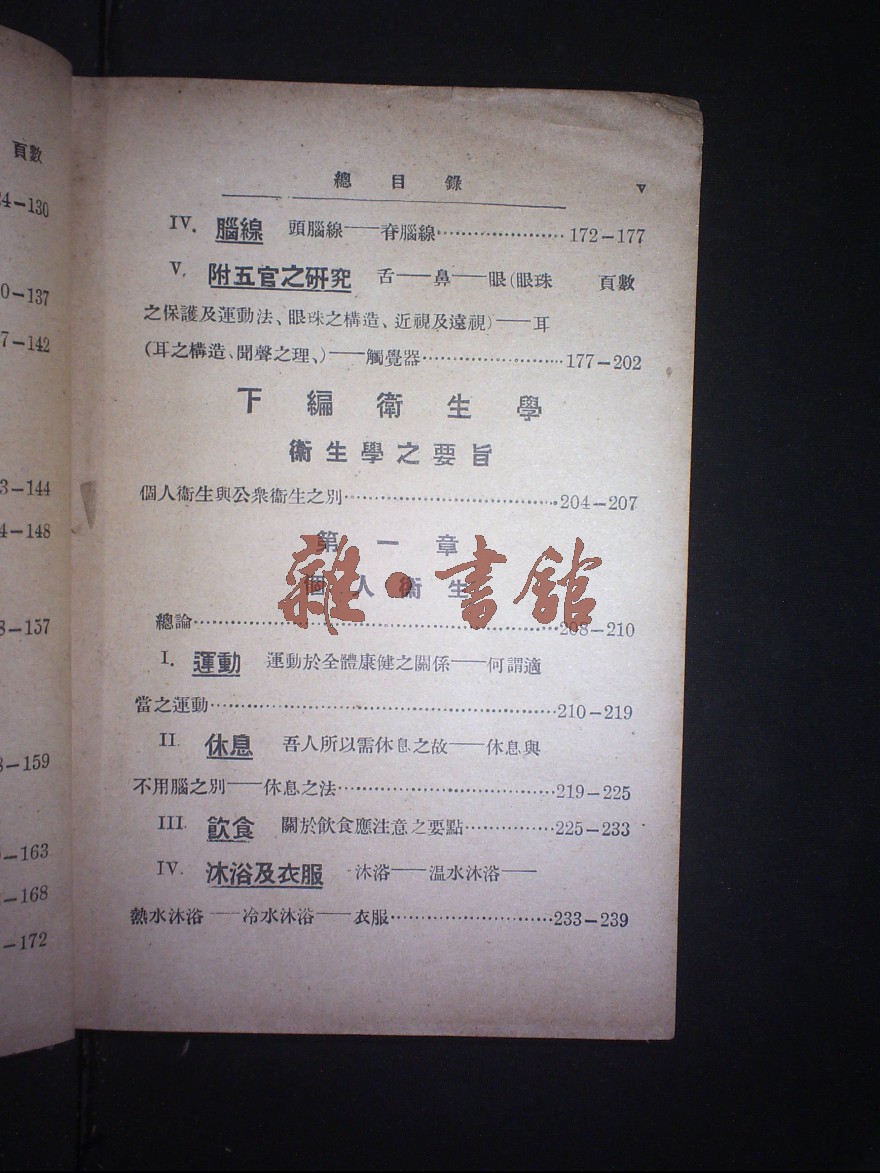 頁數
4-130
0-137
7-142
3-144
4-148
8-157
8-159
-163
-168
-172
總目錄 v
IV. 腦線 頭腦線——脊腦線………………172-177
V. 附五官之研究 舌——鼻——眼(眼珠 頁數
之保護及運動法、眼珠之構造、近視及遠視)——耳
(耳之構造、聞聲之理、)——觸覺器…………………177-202
下編衛生學
衞生學之要旨
個人衞生與公衆衞生之別……………………………204-207
第一章
個人衞生
雜·書館
總論……………………………………………………208-210
I. 運動 運動於全體康健之關係——何謂適
當之運動………………………………………………210-219
II. 休息 吾人所以需休息之故——休息與
不用腦之別——休息之法……………………………219-225
III. 飲食 關於飲食應注意之要點……………225-233
IV. 沐浴及衣服 沐浴——温水沐浴——
熱水沐浴——冷水沐浴——衣服……………………233-239